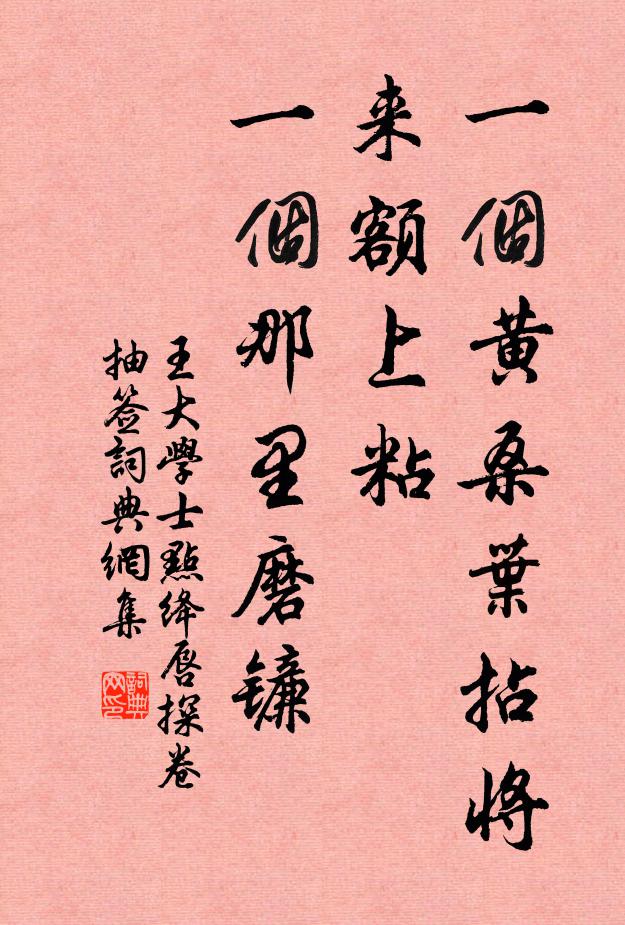 一個黄桑葉拈將
来額上粘
一個那里磨鐮
王大學士點絳唇探卷
抽签詞典網集
詞典网印